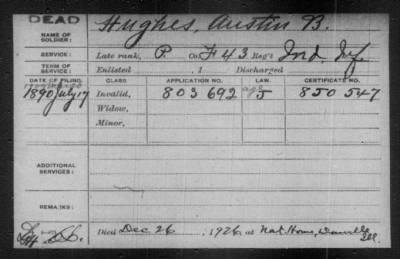 DEAD
NAME OF SOLDIER: Hughes, Austin B.
SERVICE: Late rank, P. Co. H 43 Reg't Ind. Inf
TERM OF SERVICE: Enlisted , 1 Discharged
DATE OF FILING. CLASS. APPLICATION NO. LAW. CERTIFICATE NO.
1890 July 17 Invalid, 803 692 5 850 547
Widow,
Minor,
ADDITIONAL SERVICES:
REMARKS:
Died Dec 26, 1926, at Nat. Home, Danville
Ill.